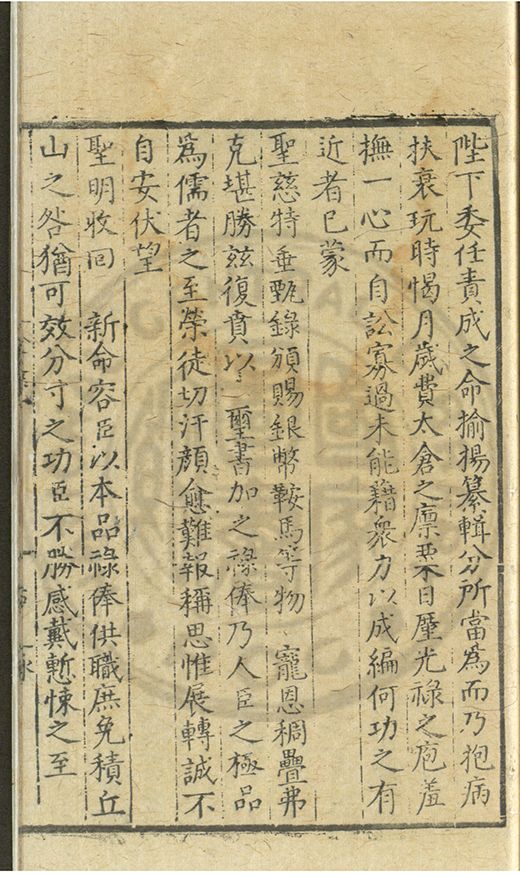 陛下委任責成之命揄揚纂輯分所當為而乃抱病
扶衰玩時愒月歲費太倉之廪粟日麈光祿之庖羞
撫一心而自訟寡過未能藉衆力以成編何功之有
近者已蒙
聖慈特垂甄錄頒賜銀幣鞍馬等物 寵恩稠疊弗
克堪勝玆復賁以 璽書加之祿俸乃人臣之極品
為儒者之至榮徒切汗顏愈難報稱思惟展轉誠不
自安伏望
聖明收回 新命容臣以本品祿俸供職庶免積丘
山之咎猶可效分寸之功臣不勝感戴慙悚之至